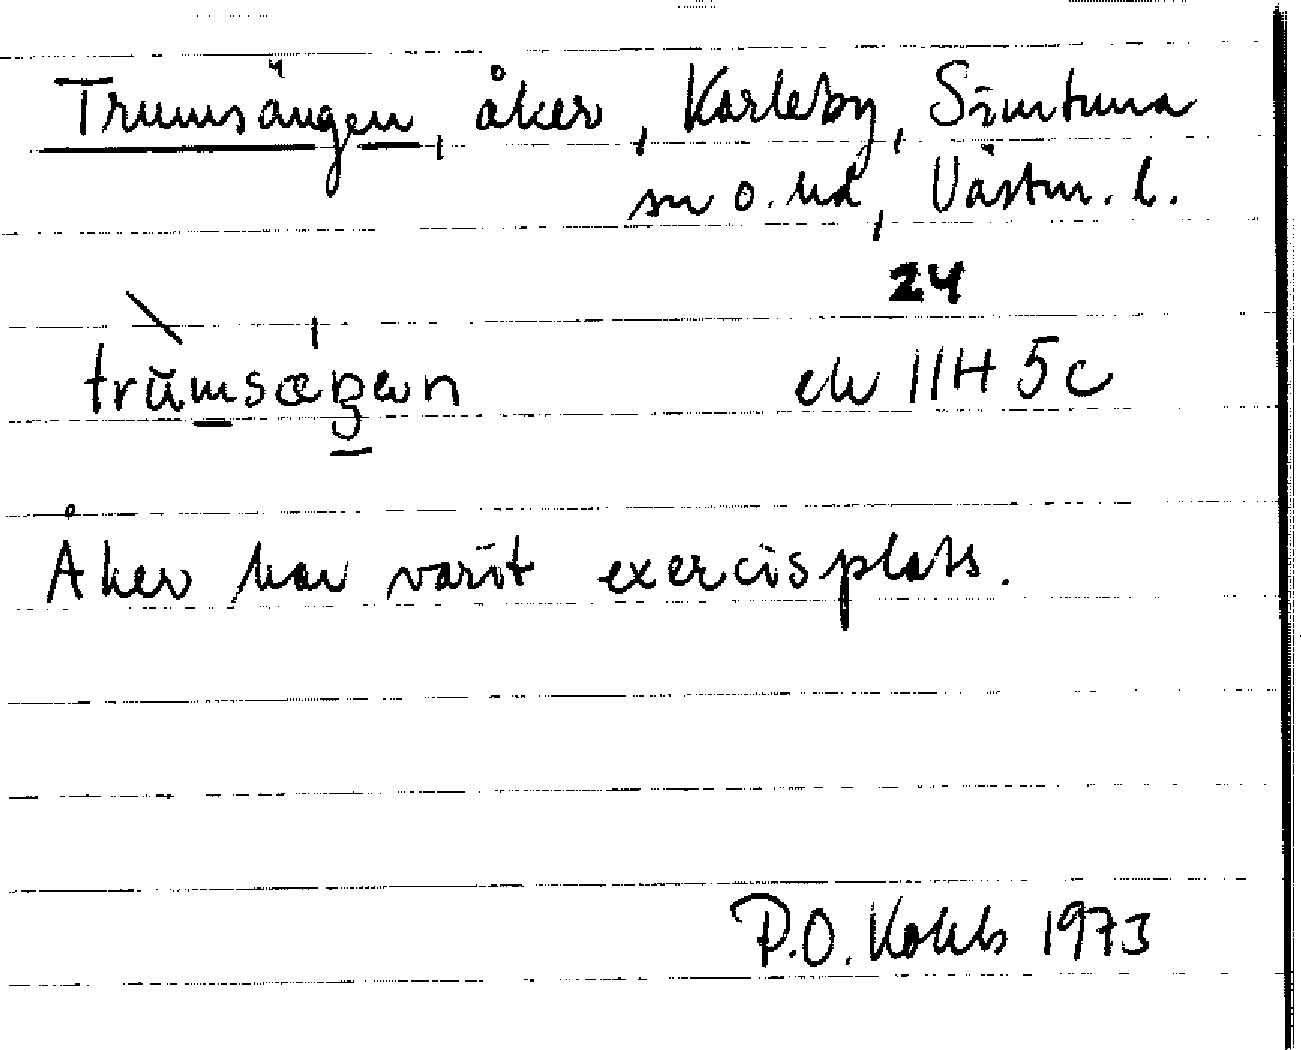 Trumsängen, åker, Karleby, Simtuna
sn o. hd, Västm. l.
24
ek 11H 5c
Åker har varit exercisplats.
1973